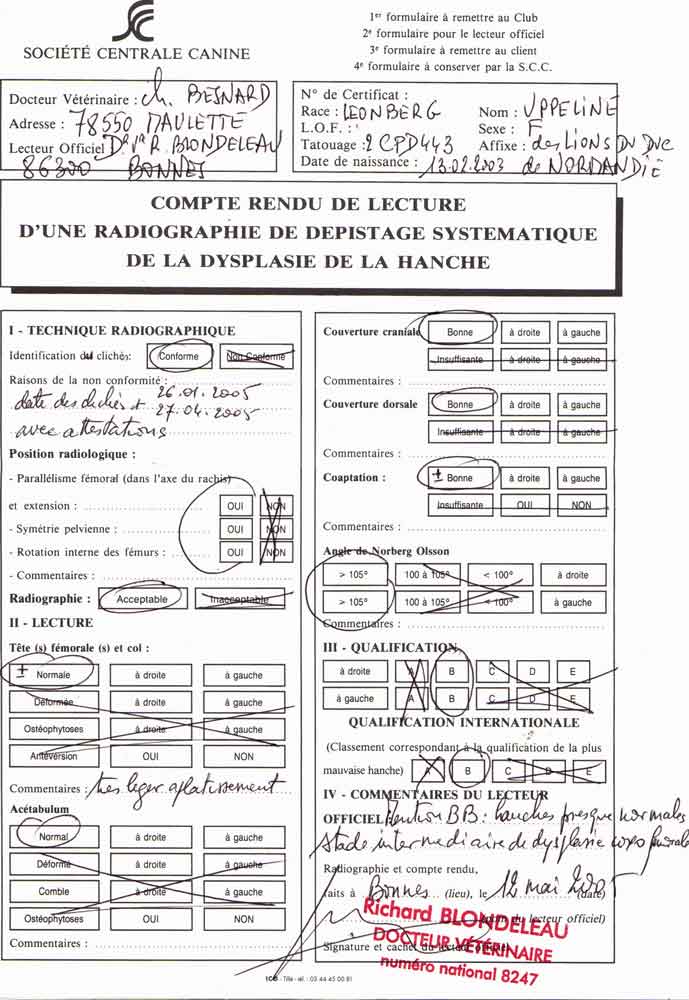 SOCIÉTÉ CENTRALE CANINE
1er formulaire à remettre au Club
2e formulaire pour le lecteur officiel
3e formulaire à remettre au client
4e formulaire à conserver par la S.C.C.
Docteur Vétérinaire : Ch. BESNARD
Adresse : 78550 MAULETTE
Lecteur Officiel Dr Vre R BLONDELEAU
86300 BONNES
N° de Certificat :
Race : LEONBERG
Nom : UPPELINE
L.O.F. :
Sexe : F
Tatouage : 2 CPD443
Affixe : des LIONS DU DUC
Date de naissance : 13.02.2003
de NORMANDIE
COMPTE RENDU DE LECTURE
D'UNE RADIOGRAPHIE DE DEPISTAGE SYSTEMATIQUE
DE LA DYSPLASIE DE LA HANCHE
I - TECHNIQUE RADIOGRAPHIQUE
Identification du clichés: Conforme Non Conforme
Raisons de la non conformité :
date des clichés + 26.01.2005
27.04.2005
avec attestations
Position radiologique :
- Parallélisme fémoral (dans l'axe du rachis)
et extension : OUI NON
- Symétrie pelvienne : OUI NON
- Rotation interne des fémurs : OUI NON
- Commentaires :
Radiographie : Acceptable Inacceptable
II - LECTURE
Tête (s) fémorale (s) et col :
± Normale à droite à gauche
Déformée à droite à gauche
Ostéophytoses à droite à gauche
Antéversion OUI NON
Commentaires : très léger aplatissement
Acétabulum
Normal à droite à gauche
Déformé à droite à gauche
Comblé à droite à gauche
Ostéophytoses OUI NON
Commentaires :
Couverture craniale Bonne à droite à gauche
Insuffisante à droite à gauche
Commentaires :
Couverture dorsale Bonne à droite à gauche
Insuffisante à droite à gauche
Commentaires :
Coaptation : ± Bonne à droite à gauche
Insuffisante OUI NON
Commentaires :
Angle de Norberg Olsson
> 105° 100 à 105° < 100° à droite
> 105° 100 à 105° < 100° à gauche
Commentaires :
III - QUALIFICATION
à droite A B C D E
à gauche A B C D E
QUALIFICATION INTERNATIONALE
(Classement correspondant à la qualification de la plus
mauvaise hanche) A B C D E
IV - COMMENTAIRES DU LECTEUR
OFFICIEL Mention BB : hanches presque normales
stade intermédiaire de dysplasie coxo fémorale
Radiographie et compte rendu,
faits à Bonnes (lieu), le 12 mai 2005 (date)
(nom du lecteur officiel)
Signature et cachet du lecteur officiel
Richard BLONDELEAU
DOCTEUR VÉTÉRINAIRE
numéro national 8247
ICB - Tille - tél. : 03 44 45 00 91